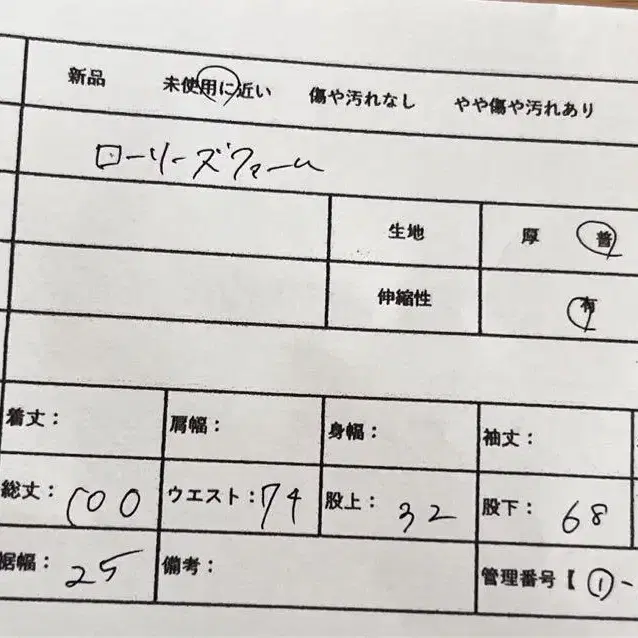 新品 未使用に近い 傷や汚れなし やや傷や汚れあり
ローリーズファーム
生地 厚 普
伸縮性 有
着丈： 肩幅： 身幅： 袖丈：
総丈：100 ウエスト：74 股上：32 股下：68
裾幅：25 備考： 管理番号【 ①-